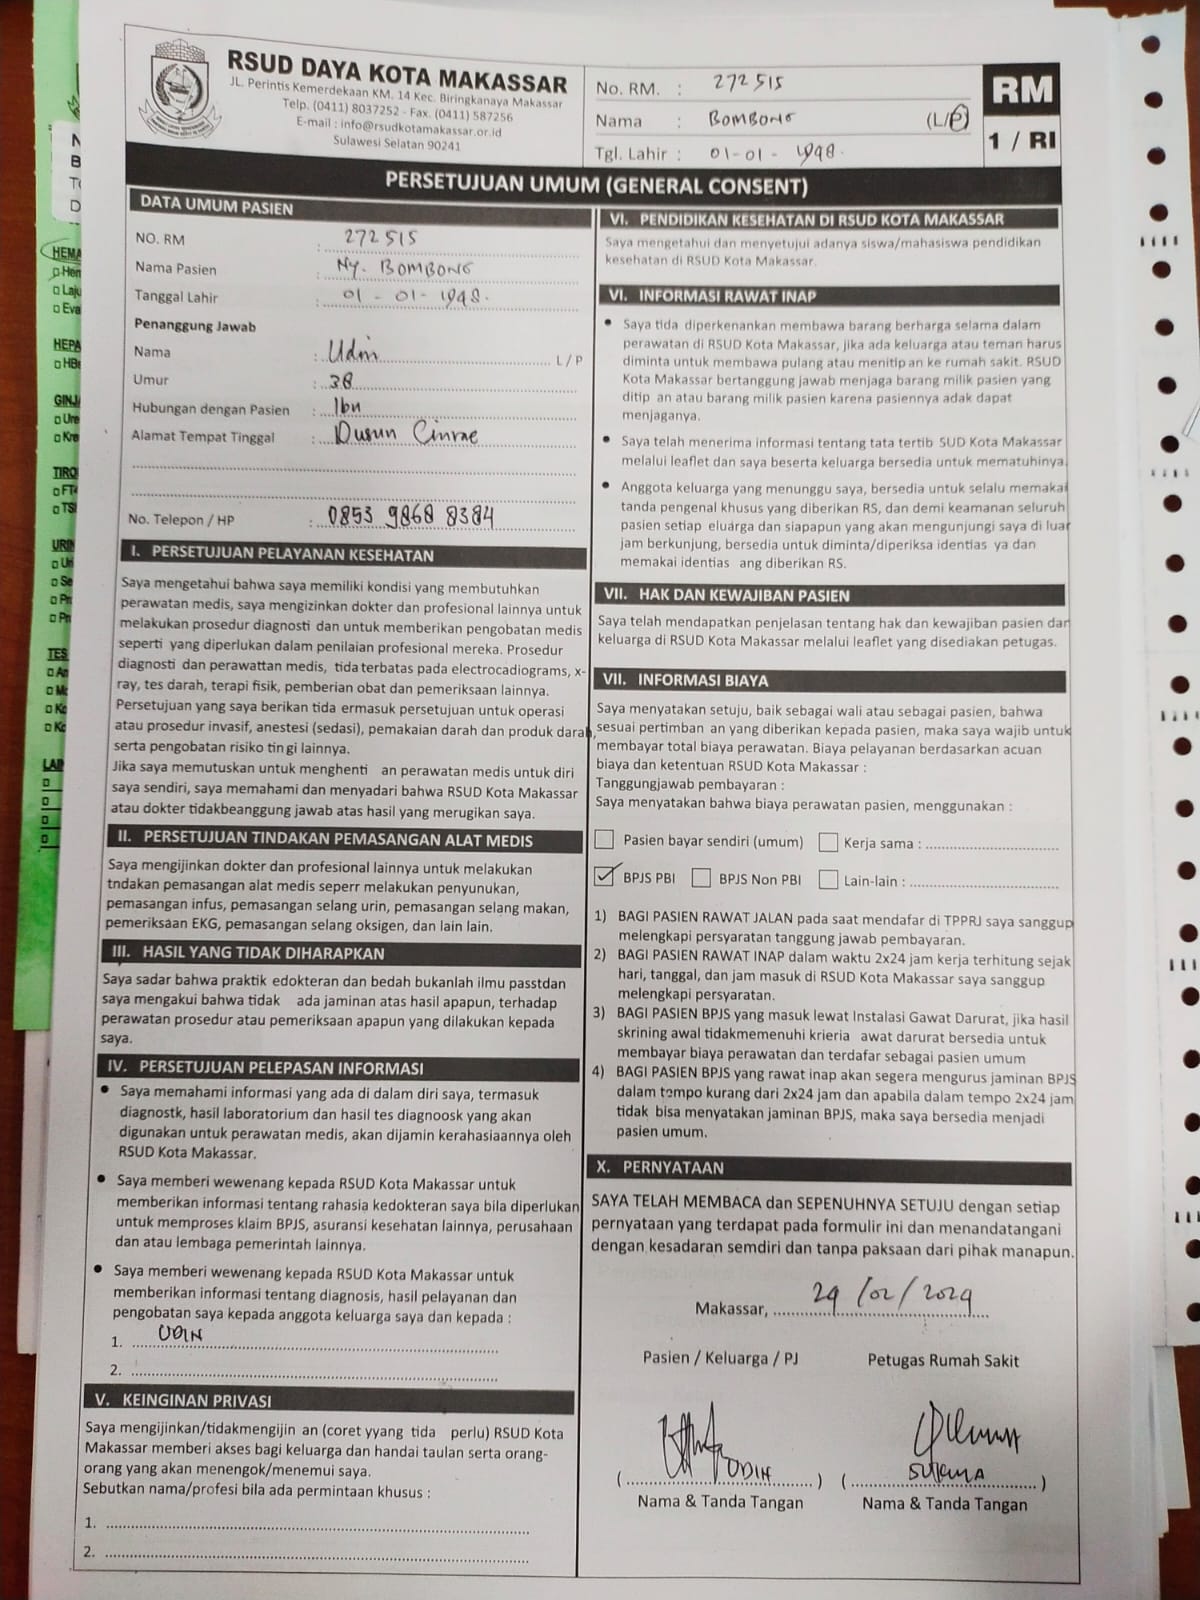 RSUD DAYA KOTA MAKASSAR
JL. Perintis Kemerdekaan KM. 14 Kec. Biringkanaya Makassar
Telp. (0411) 8037252 - Fax. (0411) 587256
E-mail : info@rsudkotamakassar.or.id
Sulawesi Selatan 90241
No. RM. : 272515
Nama : BOMBONG (L/P)
Tgl. Lahir : 01-01-1948.
RM
1 / RI
PERSETUJUAN UMUM (GENERAL CONSENT)
DATA UMUM PASIEN
NO. RM : 272515
Nama Pasien : NY. BOMBONG
Tanggal Lahir : 01-01-1948.
Penanggung Jawab
Nama : Udin L / P
Umur : 38
Hubungan dengan Pasien : Ibu
Alamat Tempat Tinggal : Dusun Cinrae
No. Telepon / HP : 0853 9868 8384
I. PERSETUJUAN PELAYANAN KESEHATAN
Saya mengetahui bahwa saya memiliki kondisi yang membutuhkan
perawatan medis, saya mengizinkan dokter dan profesional lainnya untuk
melakukan prosedur diagnosti dan untuk memberikan pengobatan medis
seperti yang diperlukan dalam penilaian profesional mereka. Prosedur
diagnosti dan perawattan medis, tida terbatas pada electrocadiograms, x-
ray, tes darah, terapi fisik, pemberian obat dan pemeriksaan lainnya.
Persetujuan yang saya berikan tida ermasuk persetujuan untuk operasi
atau prosedur invasif, anestesi (sedasi), pemakaian darah dan produk darah,
serta pengobatan risiko tin gi lainnya.
Jika saya memutuskan untuk menghenti an perawatan medis untuk diri
saya sendiri, saya memahami dan menyadari bahwa RSUD Kota Makassar
atau dokter tidakbeanggung jawab atas hasil yang merugikan saya.
II. PERSETUJUAN TINDAKAN PEMASANGAN ALAT MEDIS
Saya mengijinkan dokter dan profesional lainnya untuk melakukan
tndakan pemasangan alat medis seperr melakukan penyunukan,
pemasangan infus, pemasangan selang urin, pemasangan selang makan,
pemeriksaan EKG, pemasangan selang oksigen, dan lain lain.
III. HASIL YANG TIDAK DIHARAPKAN
Saya sadar bahwa praktik edokteran dan bedah bukanlah ilmu passtdan
saya mengakui bahwa tidak ada jaminan atas hasil apapun, terhadap
perawatan prosedur atau pemeriksaan apapun yang dilakukan kepada
saya.
IV. PERSETUJUAN PELEPASAN INFORMASI
• Saya memahami informasi yang ada di dalam diri saya, termasuk
diagnostk, hasil laboratorium dan hasil tes diagnoosk yang akan
digunakan untuk perawatan medis, akan dijamin kerahasiaannya oleh
RSUD Kota Makassar.
• Saya memberi wewenang kepada RSUD Kota Makassar untuk
memberikan informasi tentang rahasia kedokteran saya bila diperlukan
untuk memproses klaim BPJS, asuransi kesehatan lainnya, perusahaan
dan atau lembaga pemerintah lainnya.
• Saya memberi wewenang kepada RSUD Kota Makassar untuk
memberikan informasi tentang diagnosis, hasil pelayanan dan
pengobatan saya kepada anggota keluarga saya dan kepada :
1. UDIN
2.
V. KEINGINAN PRIVASI
Saya mengijinkan/tidakmengijin an (coret yyang tida perlu) RSUD Kota
Makassar memberi akses bagi keluarga dan handai taulan serta orang-
orang yang akan menengok/menemui saya.
Sebutkan nama/profesi bila ada permintaan khusus :
1.
2.
VI. PENDIDIKAN KESEHATAN DI RSUD KOTA MAKASSAR
Saya mengetahui dan menyetujui adanya siswa/mahasiswa pendidikan
kesehatan di RSUD Kota Makassar.
VI. INFORMASI RAWAT INAP
• Saya tida diperkenankan membawa barang berharga selama dalam
perawatan di RSUD Kota Makassar, jika ada keluarga atau teman harus
diminta untuk membawa pulang atau menitip an ke rumah sakit. RSUD
Kota Makassar bertanggung jawab menjaga barang milik pasien yang
ditip an atau barang milik pasien karena pasiennya adak dapat
menjaganya.
• Saya telah menerima informasi tentang tata tertib SUD Kota Makassar
melalui leaflet dan saya beserta keluarga bersedia untuk mematuhinya.
• Anggota keluarga yang menunggu saya, bersedia untuk selalu memakai
tanda pengenal khusus yang diberikan RS, dan demi keamanan seluruh
pasien setiap eluarga dan siapapun yang akan mengunjungi saya di luar
jam berkunjung, bersedia untuk diminta/diperiksa identias ya dan
memakai identias ang diberikan RS.
VII. HAK DAN KEWAJIBAN PASIEN
Saya telah mendapatkan penjelasan tentang hak dan kewajiban pasien dan
keluarga di RSUD Kota Makassar melalui leaflet yang disediakan petugas.
VII. INFORMASI BIAYA
Saya menyatakan setuju, baik sebagai wali atau sebagai pasien, bahwa
sesuai pertimban an yang diberikan kepada pasien, maka saya wajib untuk
membayar total biaya perawatan. Biaya pelayanan berdasarkan acuan
biaya dan ketentuan RSUD Kota Makassar :
Tanggungjawab pembayaran :
Saya menyatakan bahwa biaya perawatan pasien, menggunakan :
Pasien bayar sendiri (umum) Kerja sama :
BPJS PBI BPJS Non PBI Lain-lain :
1) BAGI PASIEN RAWAT JALAN pada saat mendafar di TPPRJ saya sanggup
melengkapi persyaratan tanggung jawab pembayaran.
2) BAGI PASIEN RAWAT INAP dalam waktu 2x24 jam kerja terhitung sejak
hari, tanggal, dan jam masuk di RSUD Kota Makassar saya sanggup
melengkapi persyaratan.
3) BAGI PASIEN BPJS yang masuk lewat Instalasi Gawat Darurat, jika hasil
skrining awal tidakmemenuhi krieria awat darurat bersedia untuk
membayar biaya perawatan dan terdafar sebagai pasien umum
4) BAGI PASIEN BPJS yang rawat inap akan segera mengurus jaminan BPJS
dalam tempo kurang dari 2x24 jam dan apabila dalam tempo 2x24 jam
tidak bisa menyatakan jaminan BPJS, maka saya bersedia menjadi
pasien umum.
X. PERNYATAAN
SAYA TELAH MEMBACA dan SEPENUHNYA SETUJU dengan setiap
pernyataan yang terdapat pada formulir ini dan menandatangani
dengan kesadaran semdiri dan tanpa paksaan dari pihak manapun.
Makassar, 29/02/2029
Pasien / Keluarga / PJ Petugas Rumah Sakit
(UDIN) (SUKMA)
Nama & Tanda Tangan Nama & Tanda Tangan